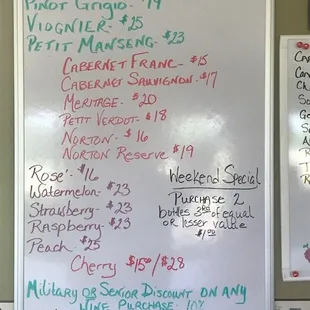 Pinot Grigio - $19
Viognier - $25
Petit Manseng - $23
Cabernet Franc - $15
Cabernet Sauvignon - $17
Meritage - $20
Petit Verdot - $18
Norton - $16
Norton Reserve $19
Rose' - $16
Watermelon - $23
Strawberry - $23
Raspberry - $23
Peach - $25
Weekend Special
Purchase 2
bottles 3rd of equal
or lesser value
$1.00
Cherry $15.00/$28
Military or Senior Discount on any
Wine Purchase - 10%